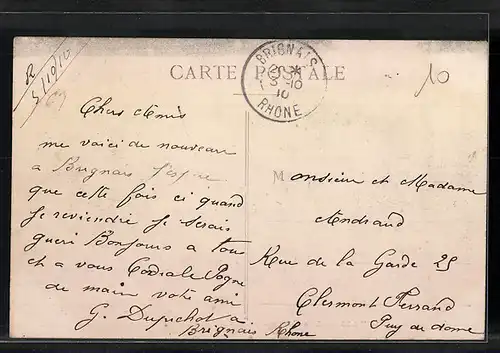 R
5/10/10
CARTE POSTALE
BRIGNAIS
3 -10
10
RHONE
10
Chers Amis
me voici de nouveau
a Brignais J'espere
que cette fois ci quand
Je reviendré Je serais
gueri Bonjours a tous
et a vous Cordiale Pogne
de main votre ami
G. Dupuchot a
Brignais Rhone
Monsieur et Madame
Andraud
Rue de la Garde 25
Clermont Ferrand
Puy de dome